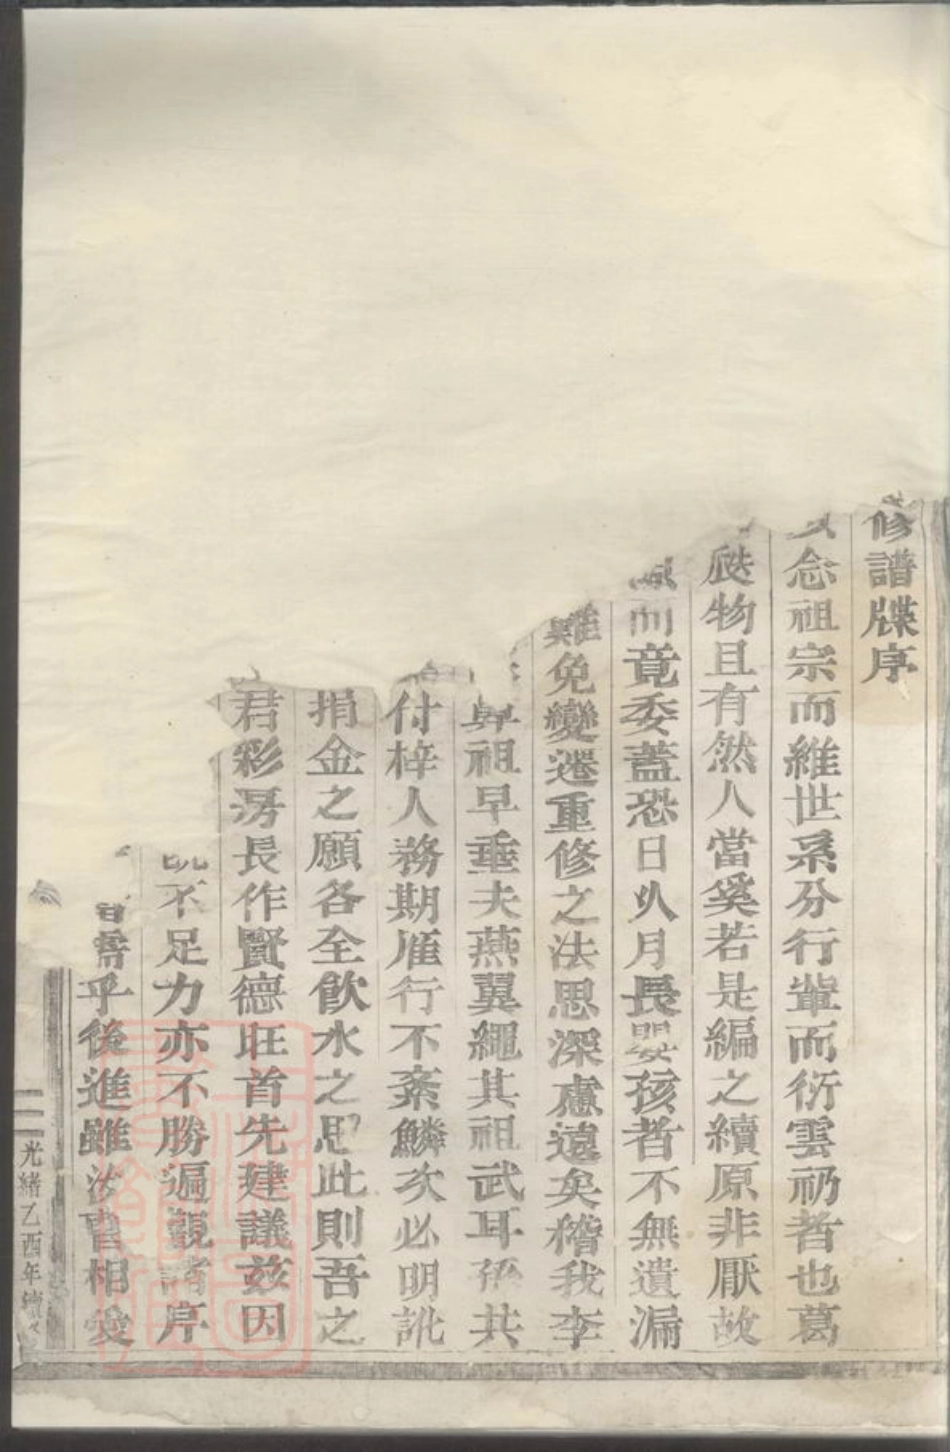 修譜牒序
念祖宗而維世系分行輩而衍雲礽者也葛
瓞物且有然人當奚若是編之續原非厭故
而竟委蓋恐日久月長嬰孩者不無遺漏
難免變遷重修之法思深慮遠矣稽我李
祖早垂夫燕翼繩其祖武耳孫共
付梓人務期雁行不紊鱗次必明訛
捐金之願各全飲水之思此則吾之
君彩房長作賢德旺首先建議茲因
不足力亦不勝遍觀諸序
需乎後進雖汝曹相愛
光緒乙酉年續